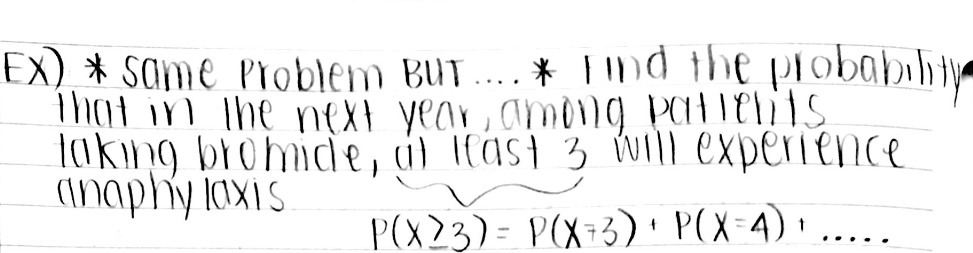 EX) * same problem BUT .... * Find the probability
that in the next year, among patients
taking bromide, at least 3 will experience
anaphylaxis
P(X≥3) = P(X=3) + P(X=4) + .....